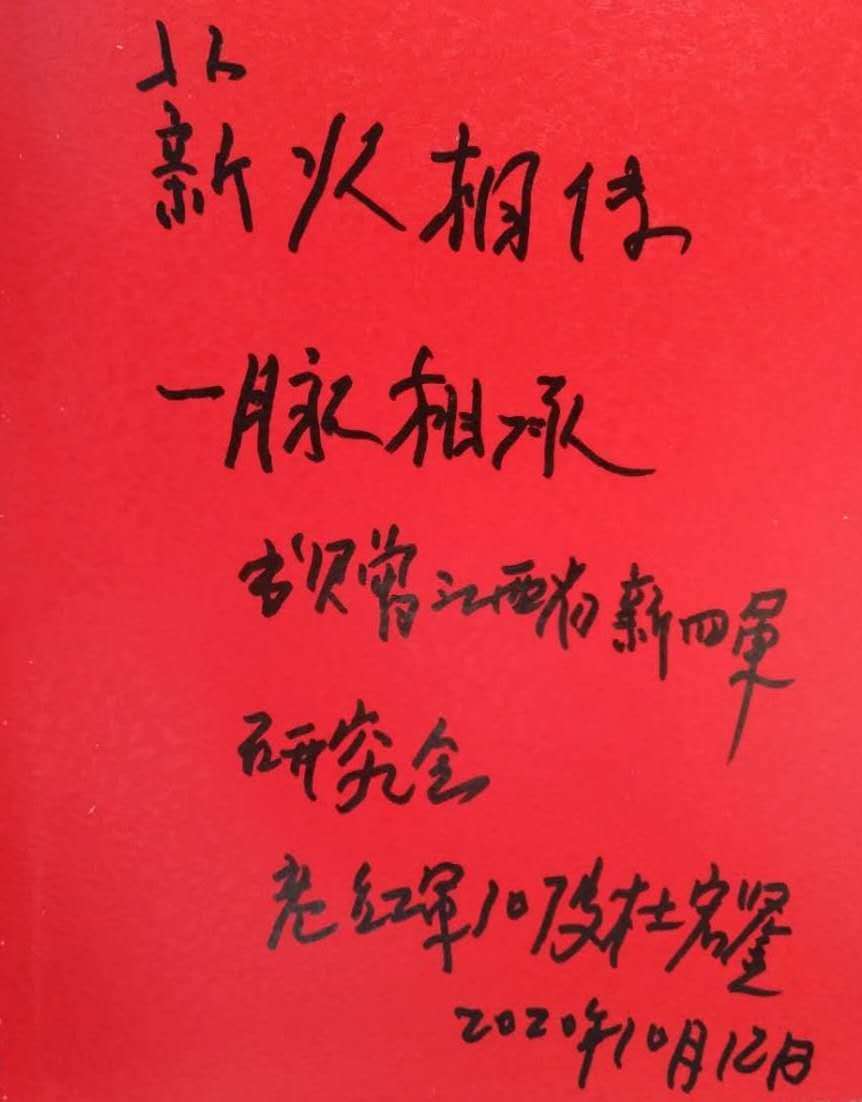 薪火相传
一脉相承
书贤赠江西省新四军
研究会
老红军10段杜宏鉴
2020年10月12日